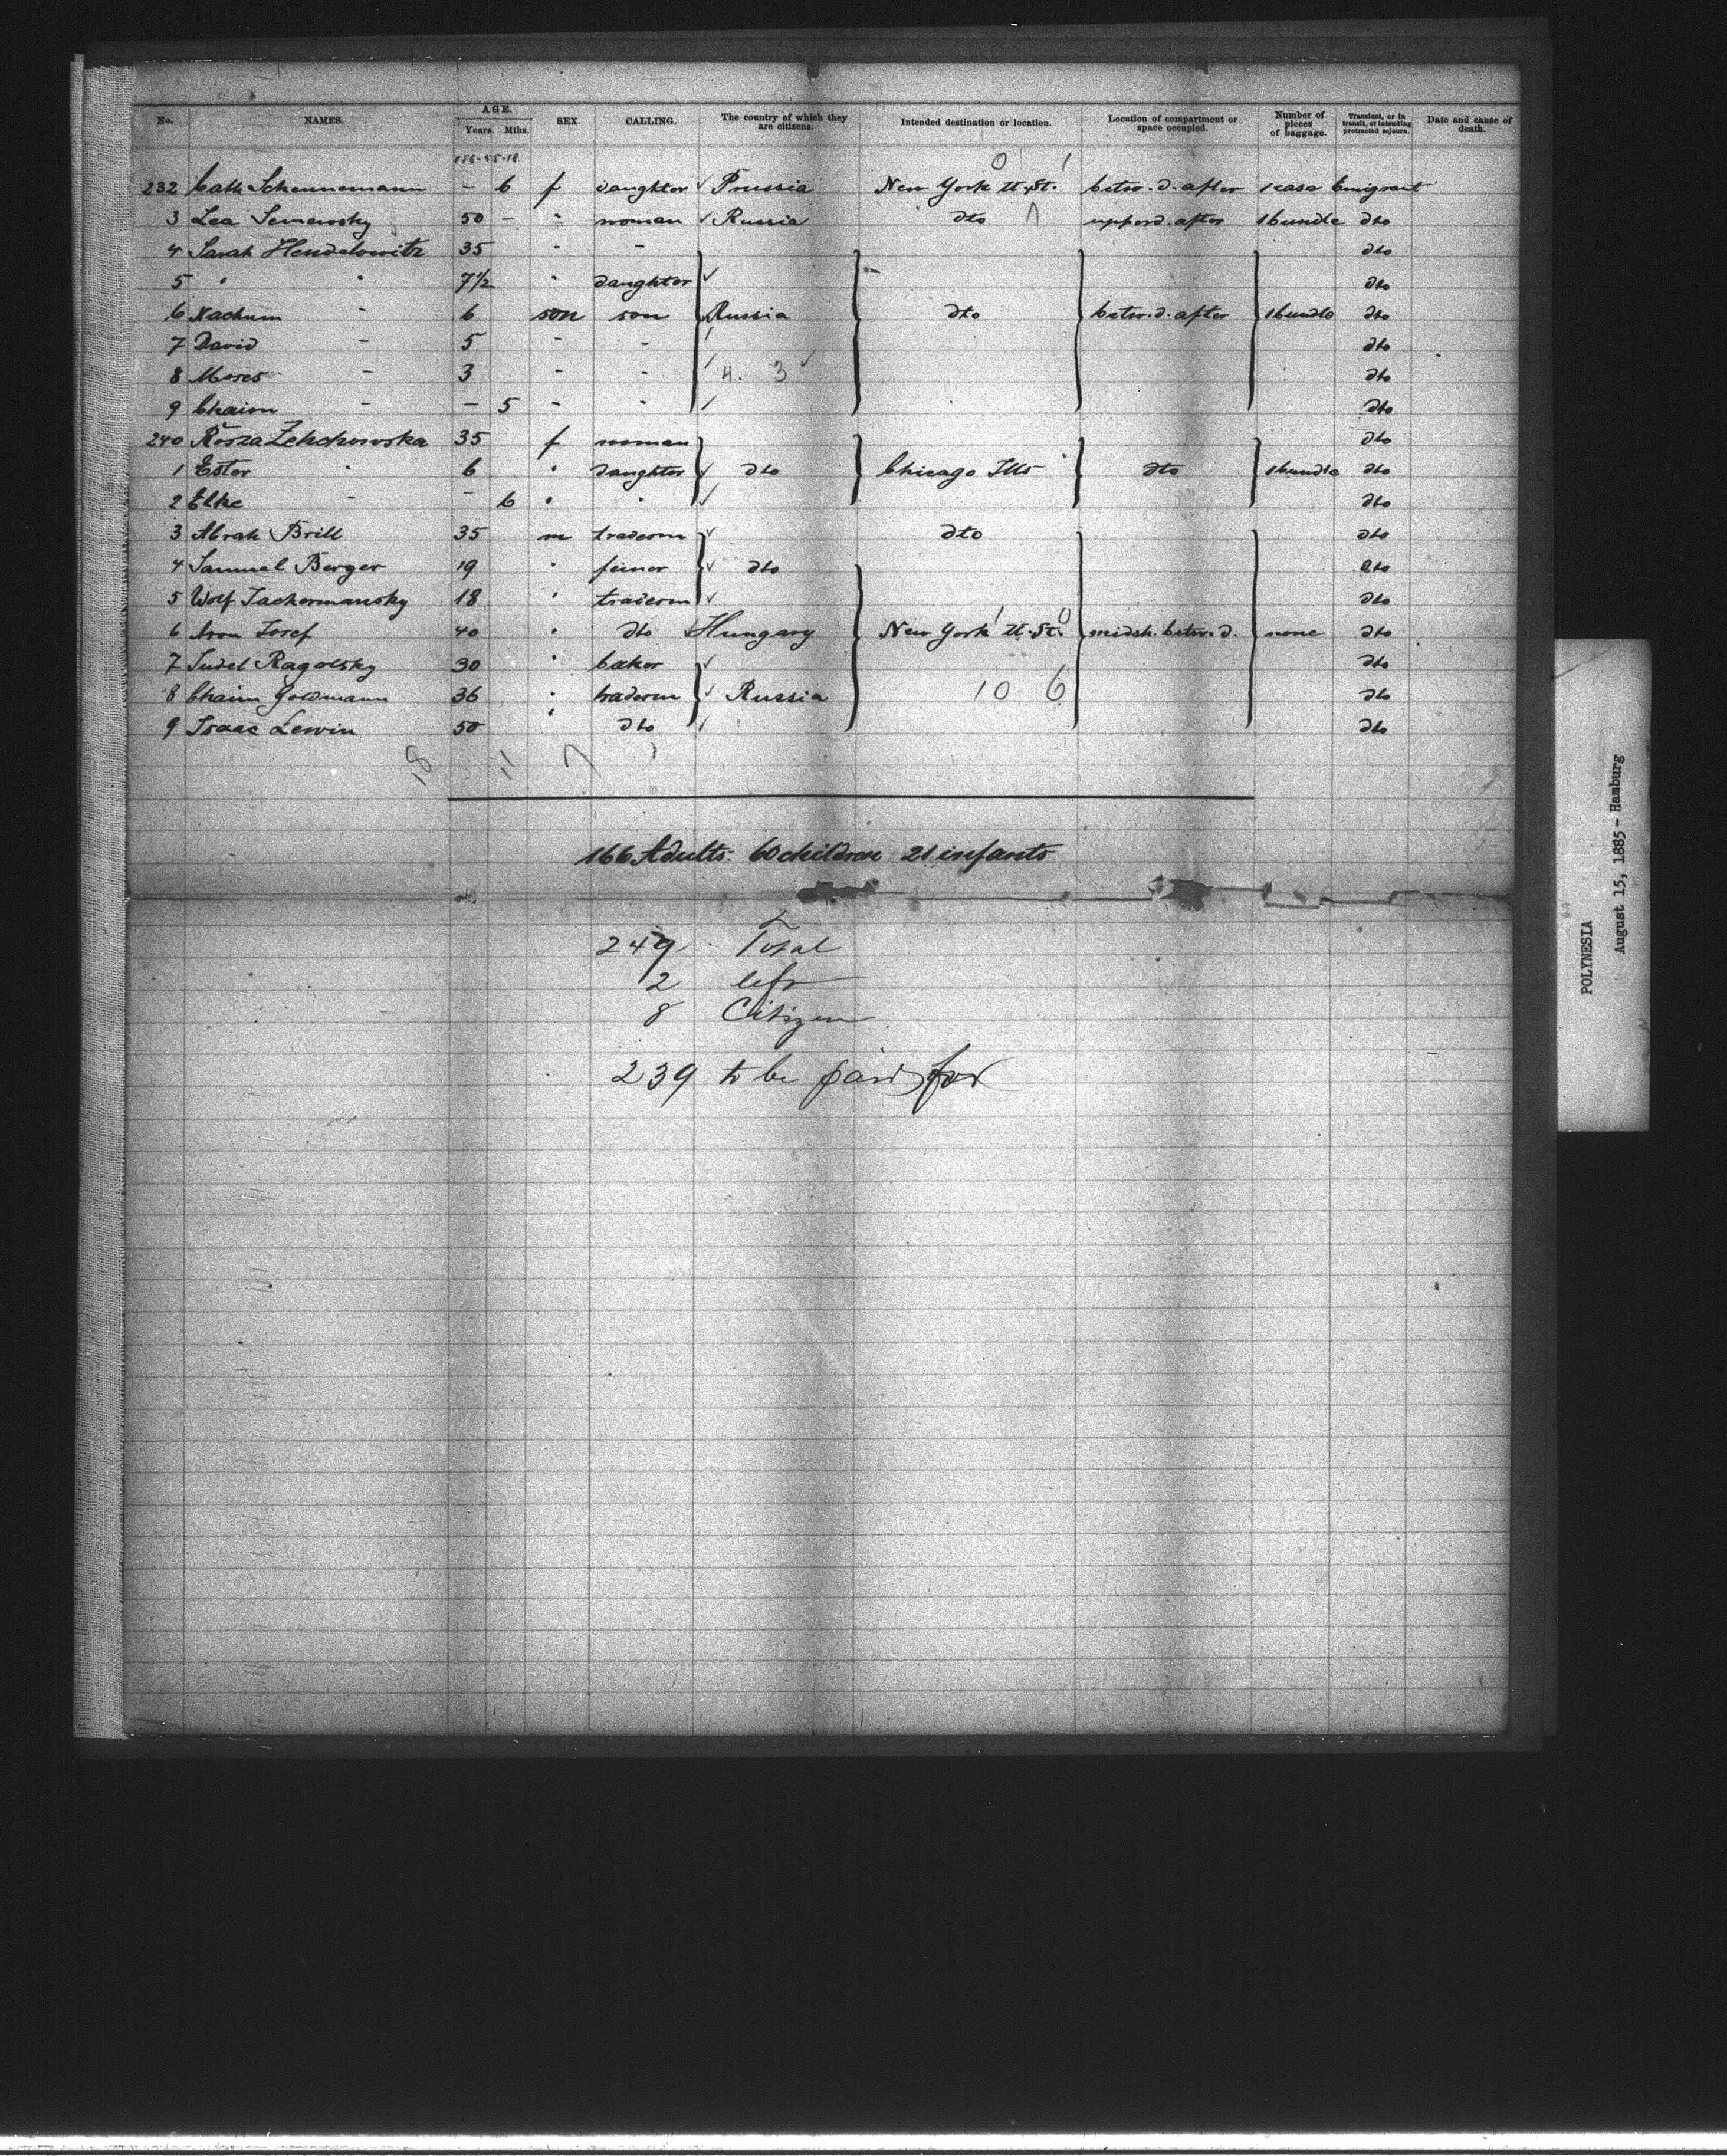 No. NAMES. AGE. Years. Mths. SEX. CALLING. The country of which they are citizens. Intended destination or location. Location of compartment or space occupied. Number of pieces of baggage. Transient, or in transit, or intending protracted sojourn. Date and cause of death.
0 1
232 Cath Scheunemann - 6 f daughter Prussia New York U. St. betw. d. after 1 case Emigrant
3 Lea 50 - " woman Russia dto upper d. after 1 bundle dto
4 Sarah Hendelowitz 35 " " dto
5 " " 7 1/2 " daughter dto
6 Nachum " 6 son son Russia dto betw. d. after 1 bundle dto
7 David - 5 - - dto
8 Moses - 3 - - 4. 3 dto
9 Chaim - - 5 - " dto
240 Rosza 35 f woman dto
1 Ester " 6 " daughter dto Chicago Ills dto 1 bundle dto
2 Elke - - 6 " " dto
3 Abrah Brill 35 m tradesm dto dto
4 Samuel Berger 19 " dto dto
5 Wolf 18 " tradesm dto
6 Aron Josef 40 " dto Hungary New York U. St. midsh. betw. d. none dto
7 Judel Ragolsky 30 " baker dto
8 Chaim Goldmann 36 " tradesm Russia 10 6 dto
9 Isaac Lewin 50 " dto dto
18 11 7
166 Adults 60 children 21 infants
249 - Total
2 left
8 Citizen
239 to be paid for
POLYNESIA
August 15, 1885 - Hamburg